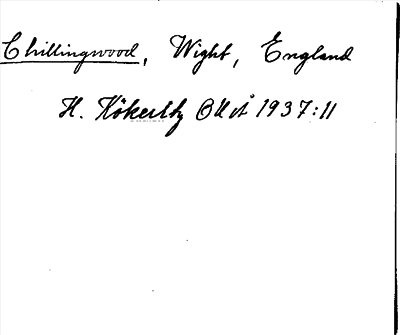 Chillingwood, Wight, England
H. Kökeritz OUÅ 1937:11